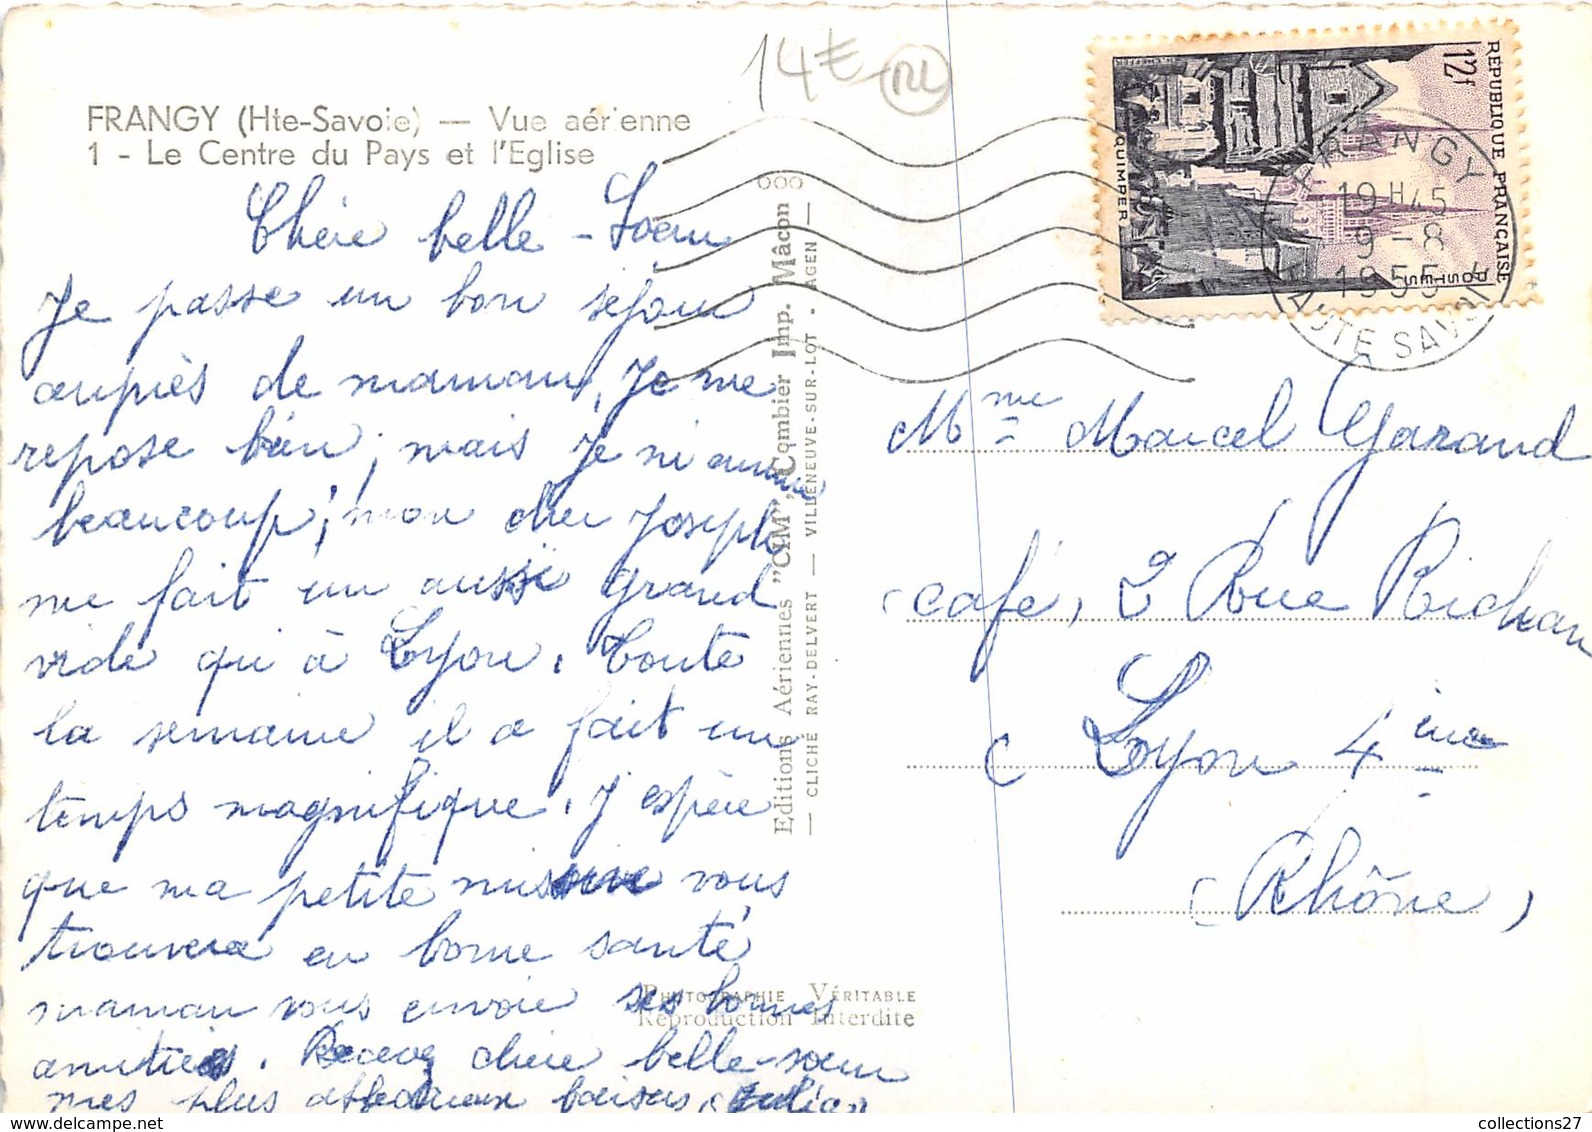 FRANGY (Hte-Savoie) — Vue aérienne
1 - Le Centre du Pays et l'Eglise
Chère belle-Soeur
Je passe un bon séjour
auprès de maman, Je me
repose bien, mais Je m'ennuie
beaucoup, mon cher Joseph
me fait un aussi grand
vide qu'à Lyon. Toute
la semaine il a fait un
temps magnifique. J'espère
que ma petite missive vous
trouvera en bonne santé
maman vous envoie ses bonnes
amitiés. Recevez chère belle-soeur
mes plus affectueux baisers
14€
RL
Editions Aériennes "CIM", Combier Imp. Mâcon
— CLICHÉ RAY-DELVERT — VILLENEUVE-SUR-LOT - AGEN —
PHOTOGRAPHIE VÉRITABLE
Reproduction Interdite
RÉPUBLIQUE FRANÇAISE
12f
POSTES
QUIMPER
FRANGY
19H45
9-8
1955
HAUTE SAVOIE
Mme Marcel Garand
café, 2 Rue Richan
Lyon 4ème
(Rhône)
collections27